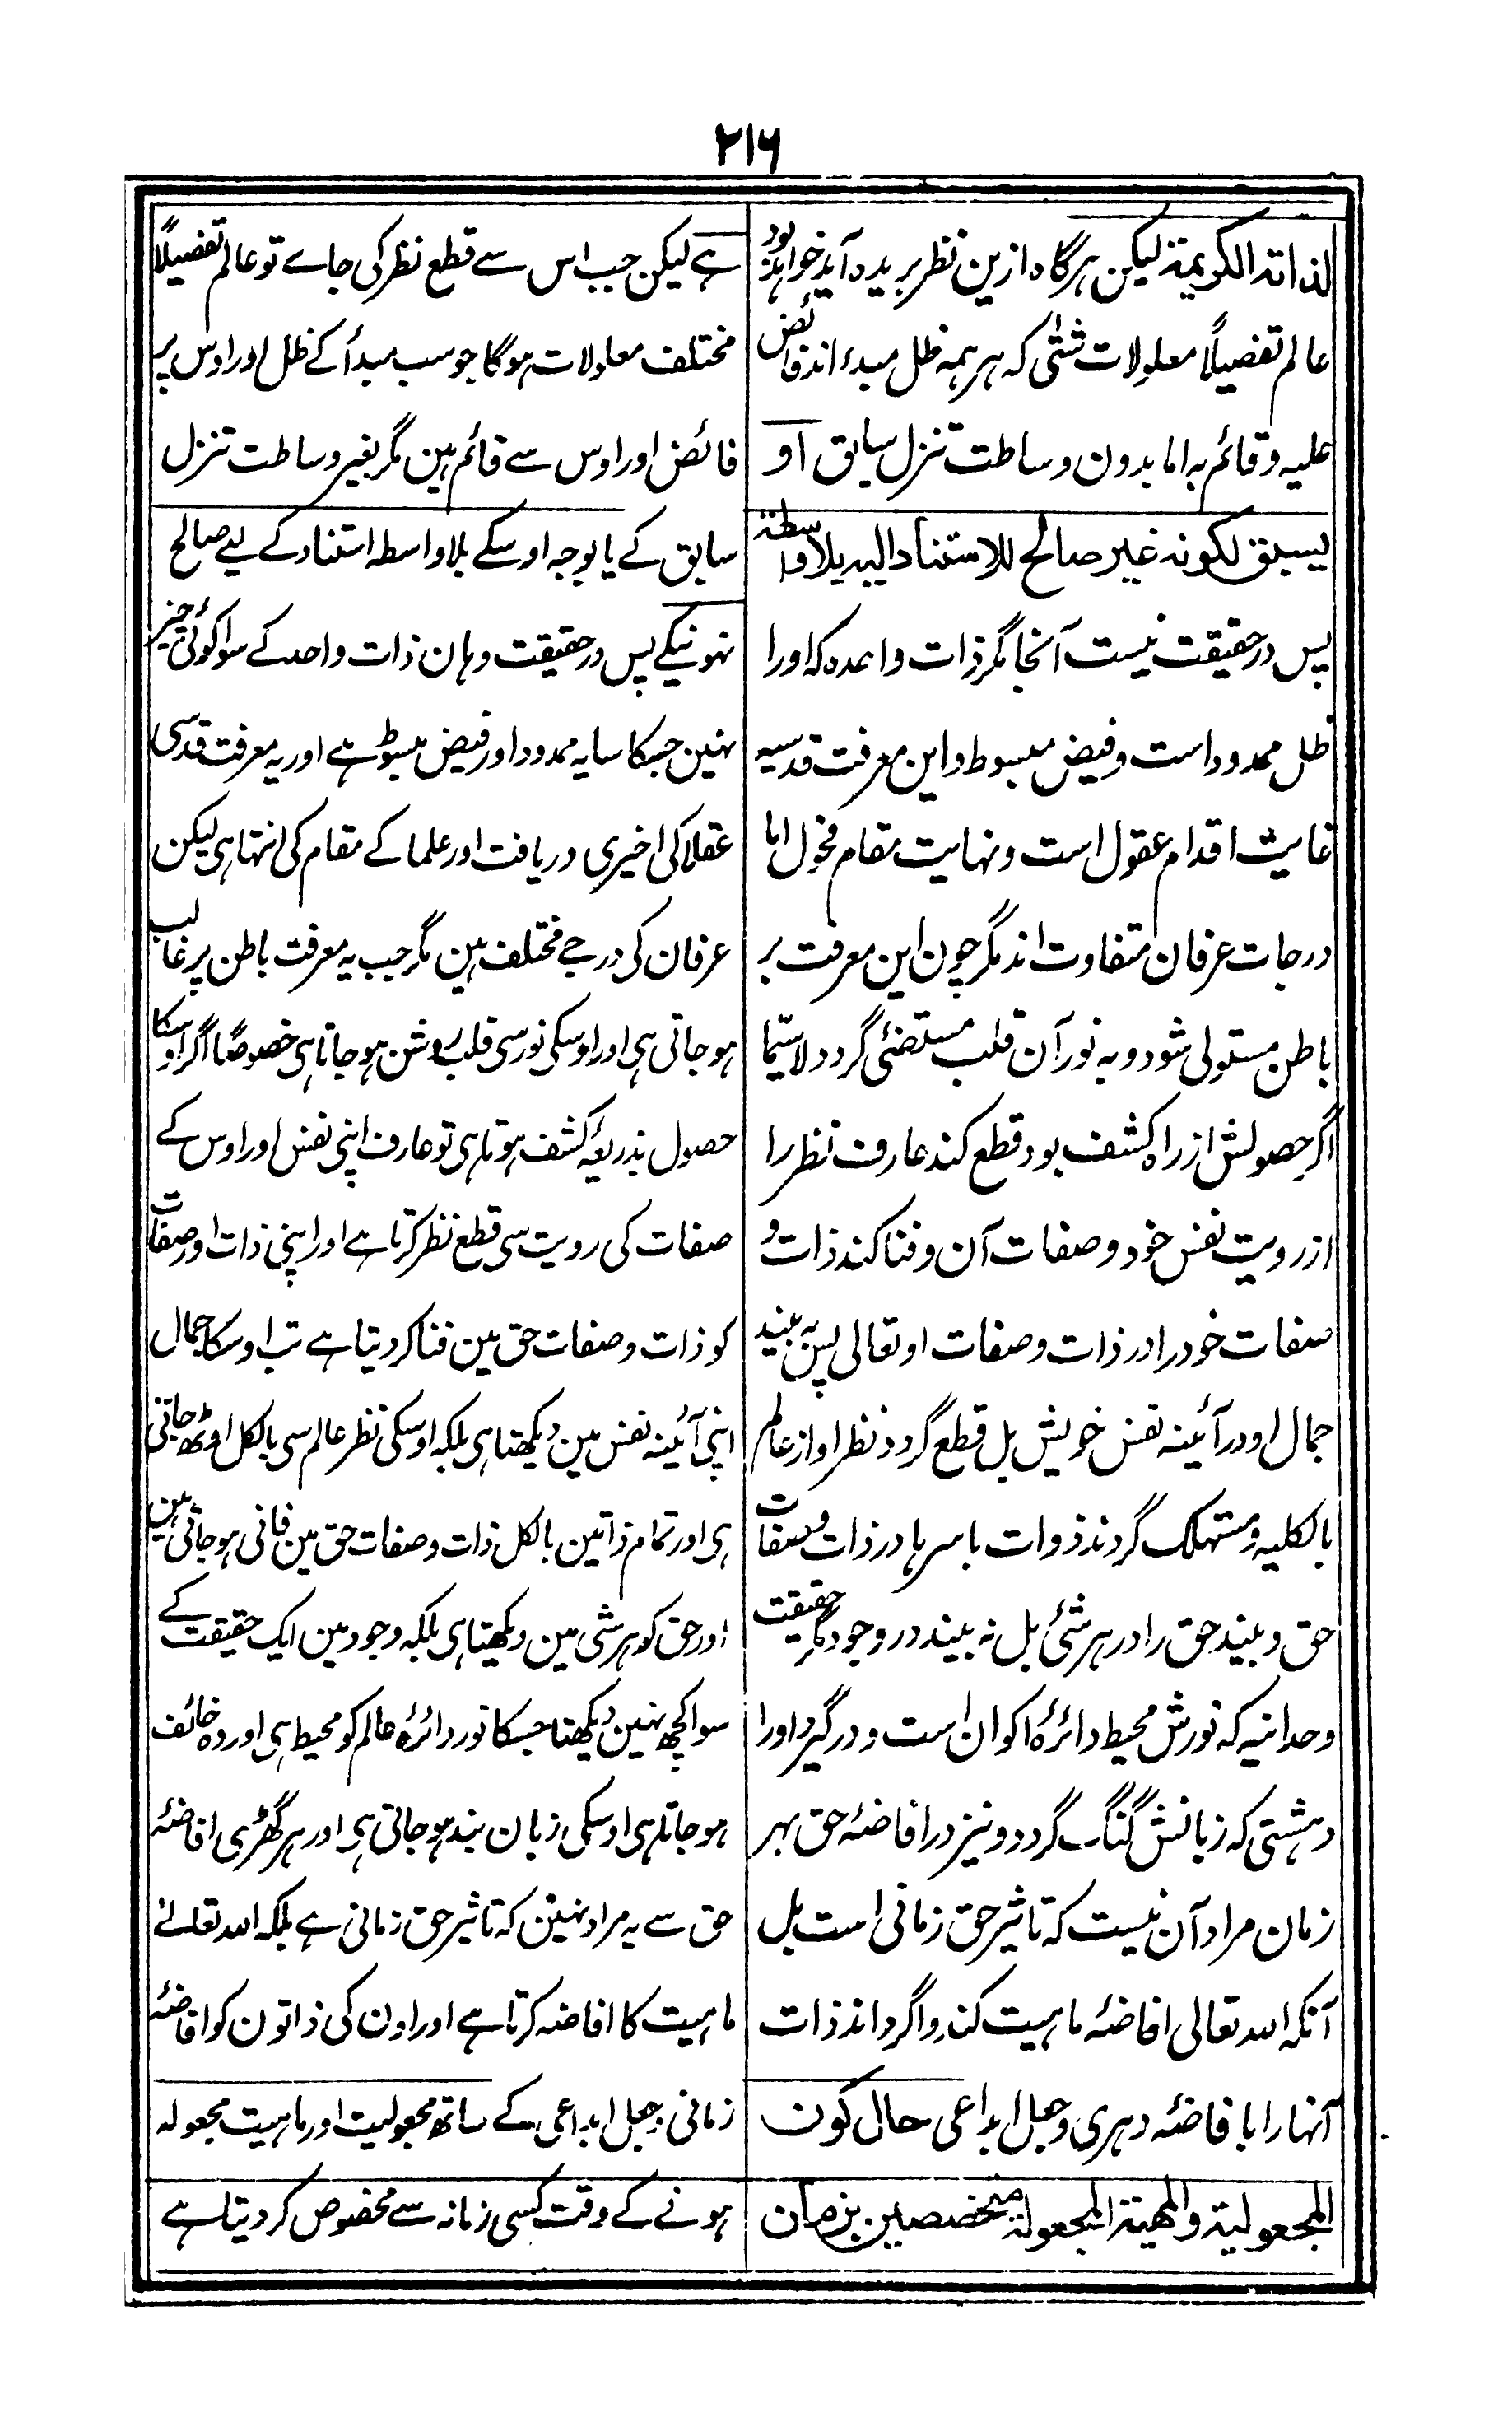 ۲۱۶
لذاته الكريمة لیکن هرگاه ازین نظر بریده آید خواهد بود
عالم تفصیلاً معلولات شتّٰی که هر همه ظل مبدء اند فائض
علیه و قائم به اما بدون وساطت تنزل سابق او
يسبق لكونه غير صالح للاستناد اليه بلا واسطة
پس در حقیقت نیست آنجا مگر ذات واحده که او را
ظل ممدود است و فیض مبسوط و این معرفت قدسیه
غایت اقدام عقول است و نهایت مقام فحول اما
درجات عرفان متفاوت اند مگر چون این معرفت بر
باطن مستولی شود و به نور آن قلب مستضئی گردد لاسیّما
اگر حصولش از راه کشف بود قطع کند عارف نظر را
از رویت نفس خود و صفات آن و فنا کند ذات و
صفات خود را در ذات و صفات او تعالی پس به بیند
جمال او در آئینه نفس خویش بل قطع گردد نظر او از عالم
بالکلیه و مستهلک گردند ذوات باسرها در ذات و صفات
حق و بیند حق را در هر شئ بل نه بیند در وجود مگر حقیقت
وحدانیه که نورش محیط دائرهٔ اکوان است و درگیرد او را
دهشتی که زبانش گنگ گردد و نیز در افاضهٔ حق بهر
زمان مراد آن نیست که تاثیر حق زمانی است بل
آنکه الله تعالی افاضهٔ ماهیت کند و اگرداند ذات
آنها را با فاضهٔ دهری و جعل ابداعی حال کون
المجعولية والمهية المجعولة متخصصين بزمان
ہے لیکن جب اس سے قطع نظر کی جاے تو عالم تفصیلاً
مختلف معلولات ہوگا جو سب مبدأ کے ظل اور اوس پر
فائض اور اوس سے قائم ہین مگر بغیر وساطت تنزل
سابق کے یا بوجہ اوسکے بلا واسطہ استناد کے لیے صالح
نہونیکے پس درحقیقت وہان ذات واحد کے سوا کوئی چیز
نہین جسکا سایہ ممدود اور فیض مبسوط ہے اور یہ معرفت قدسی
عقلا کی اخیری دریافت اور علما کے مقام کی انتہا ہی لیکن
عرفان کی درجے مختلف ہین مگر جب یہ معرفت باطن پر غالب
ہوجاتی ہی اور اوسکی نور سی قلب روشن ہوجاتا ہی خصوصًا اگر اوسکا
حصول بذریعۂ کشف ہوتا ہی تو عارف اپنی نفس اور اوس کے
صفات کی رویت سی قطع نظر کرتا ہے اور اپنی ذات اور صفات
کو ذات و صفات حق مین فنا کر دیتا ہے تب اوسکا جمال
اپنی آئینہ نفس مین دیکھتا ہی بلکہ اوسکی نظر عالم سی بالکل اوٹھ جاتی
ہی اور تمام ذاتین بالکل ذات و صفات حق مین فانی ہوجاتی ہین
اور حق کو ہر شی مین دیکھتا ہی بلکہ وجود مین ایک حقیقت کے
سوا کچھ نہین دیکھتا جسکا نور دائرۂ عالم کو محیط ہی اور وہ خائف
ہوجاتا ہی اوسکی زبان بند ہوجاتی ہی اور ہر گھڑی افاضۂ
حق سے یہ مراد نہین کہ تاثیر حق زمانی ہے بلکہ الله تعالےٰ
ماہیت کا افاضہ کرتا ہے اور اون کی ذاتون کو افاضۂ
زمانی و جعل ابداعی کے ساتھ مجعولیت اور ماہیت مجعولہ
ہونے کے وقت کسی زمانہ سے مخصوص کر دیتا ہے